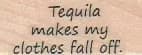 Tequila
makes my
clothes fall off.